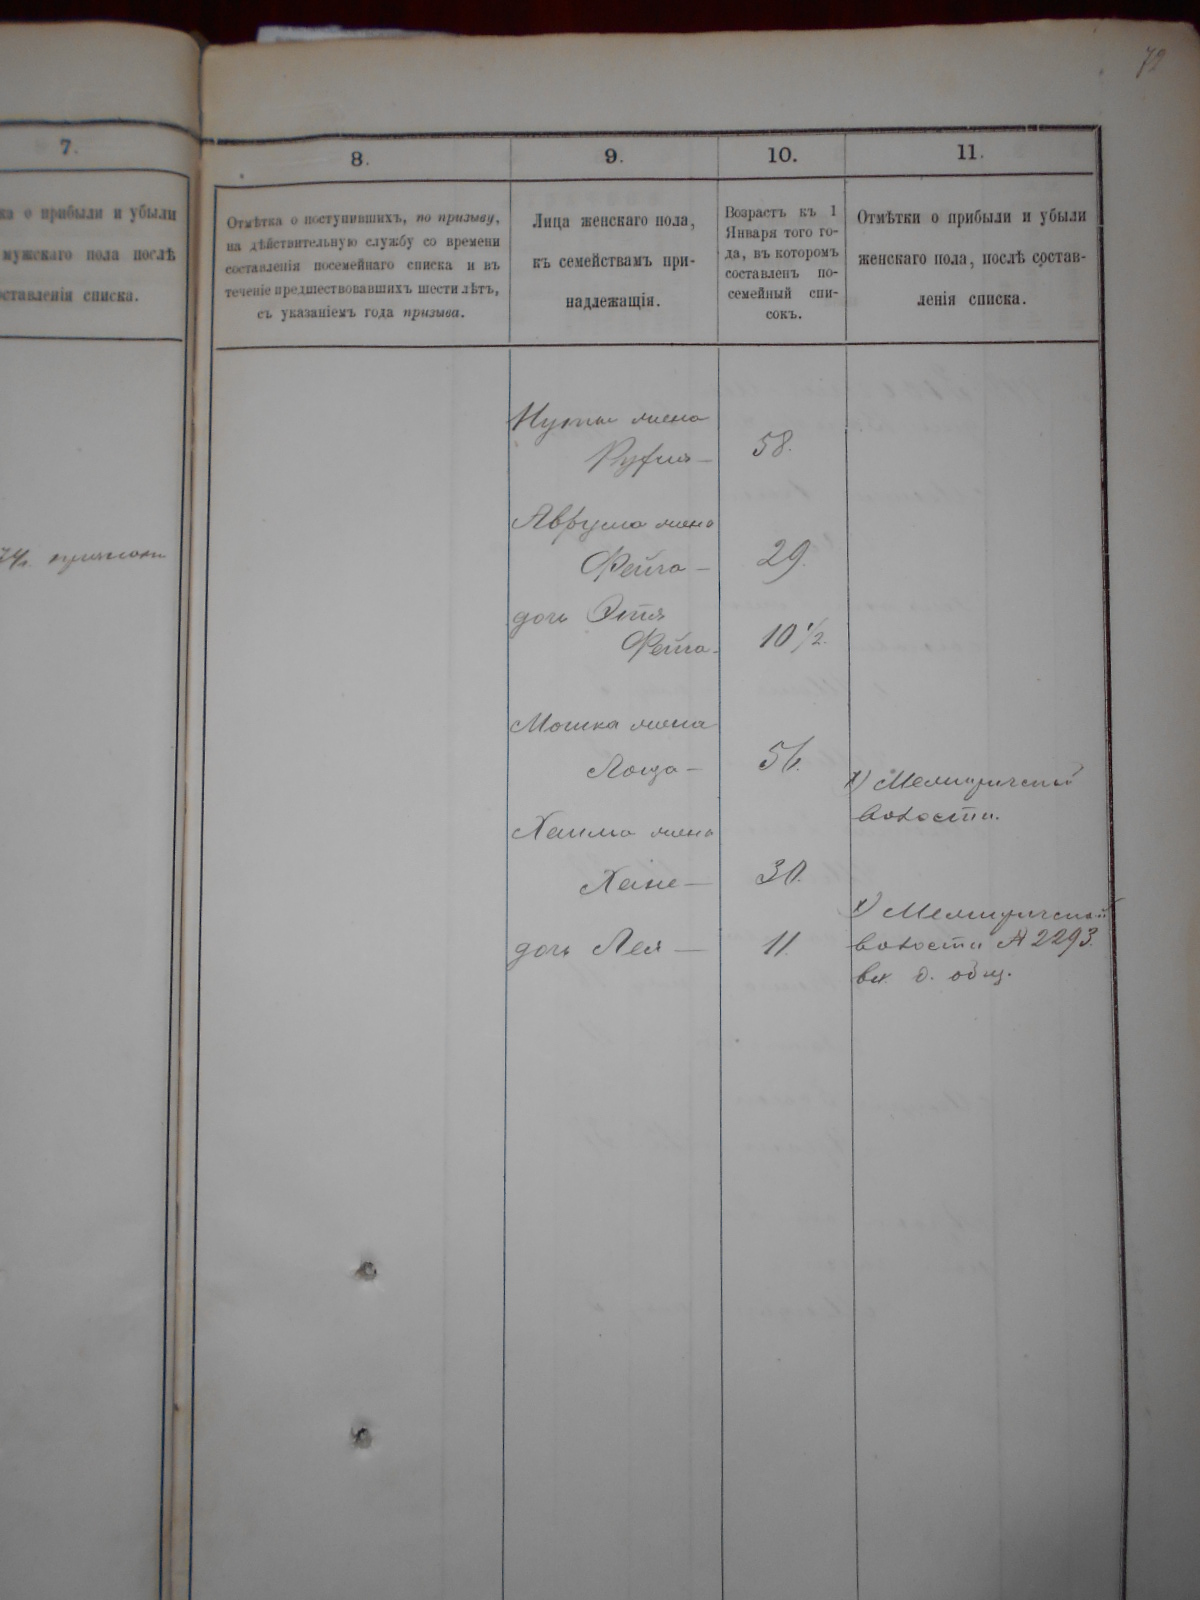 72
7.
8.
9.
10.
11.
ка о прибыли и убыли
мужскаго пола послѣ
оставленія списка.
Отмѣтка о поступившихъ, по призыву,
на дѣйствительную службу со времени
составленія посемейнаго списка и въ
теченіе предшествовавшихъ шести лѣтъ,
съ указаніемъ года призыва.
Лица женскаго пола,
къ семействамъ при-
надлежащія.
Возрастъ къ 1
Января того го-
да, въ которомъ
составленъ по-
семейный спи-
сокъ.
Отмѣтки о прибыли и убыли
женскаго пола, послѣ состав-
ленія списка.
жена
58.
Аврума жена
Фейга — 29.
дочь Этя
Фейга. 10 1/2.
Мошка жена
56.
волости.
Хаима жена
30.
дочь Лея — 11.
волости № 2293.
общ.